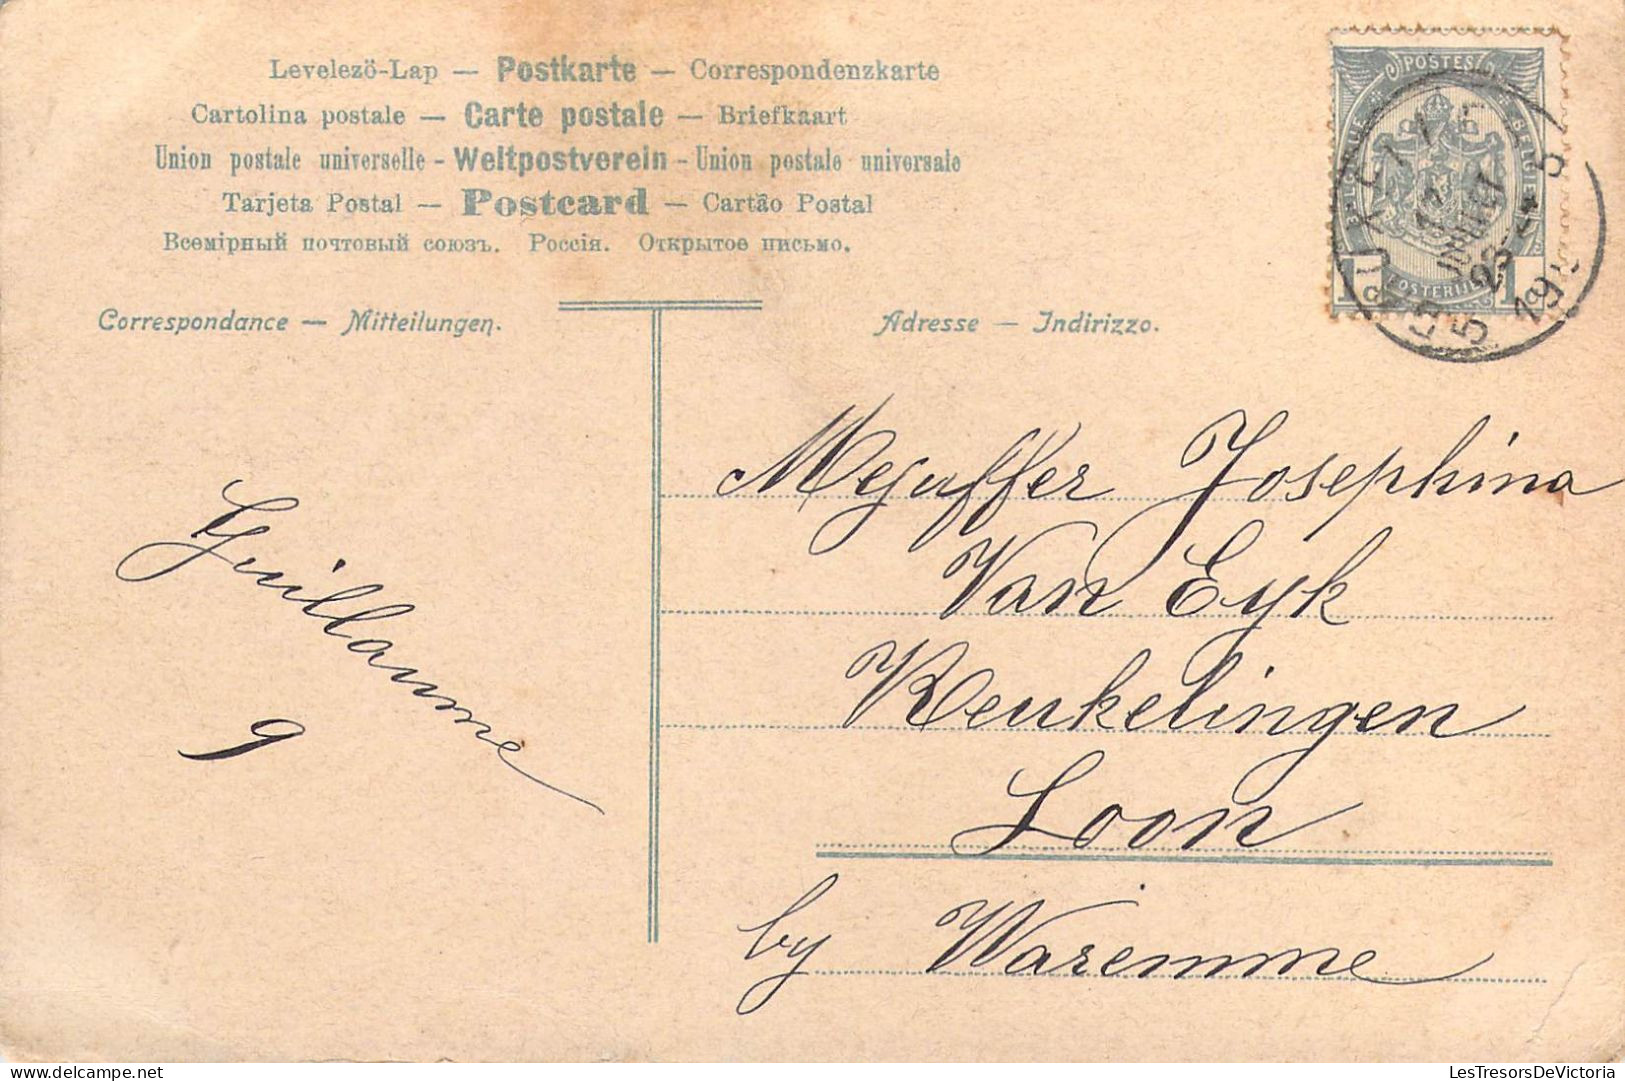 Levelező-Lap — Postkarte — Correspondenzkarte
Cartolina postale — Carte postale — Briefkaart
Union postale universelle - Weltpostverein - Union postale universale
Tarjeta Postal — Postcard — Cartão Postal
Всемірный почтовый союзъ. Россія. Открытое письмо.
POSTES
BELGIQUE
BELGIË
POSTERIJEN
1c
1
Correspondance — Mitteilungen.
Adresse — Indirizzo.
Guillaume
9
Mejuffer Josephina
Van Eyk
Reukelingen
Loon
by Waremme
LesTresorsDeVictoria